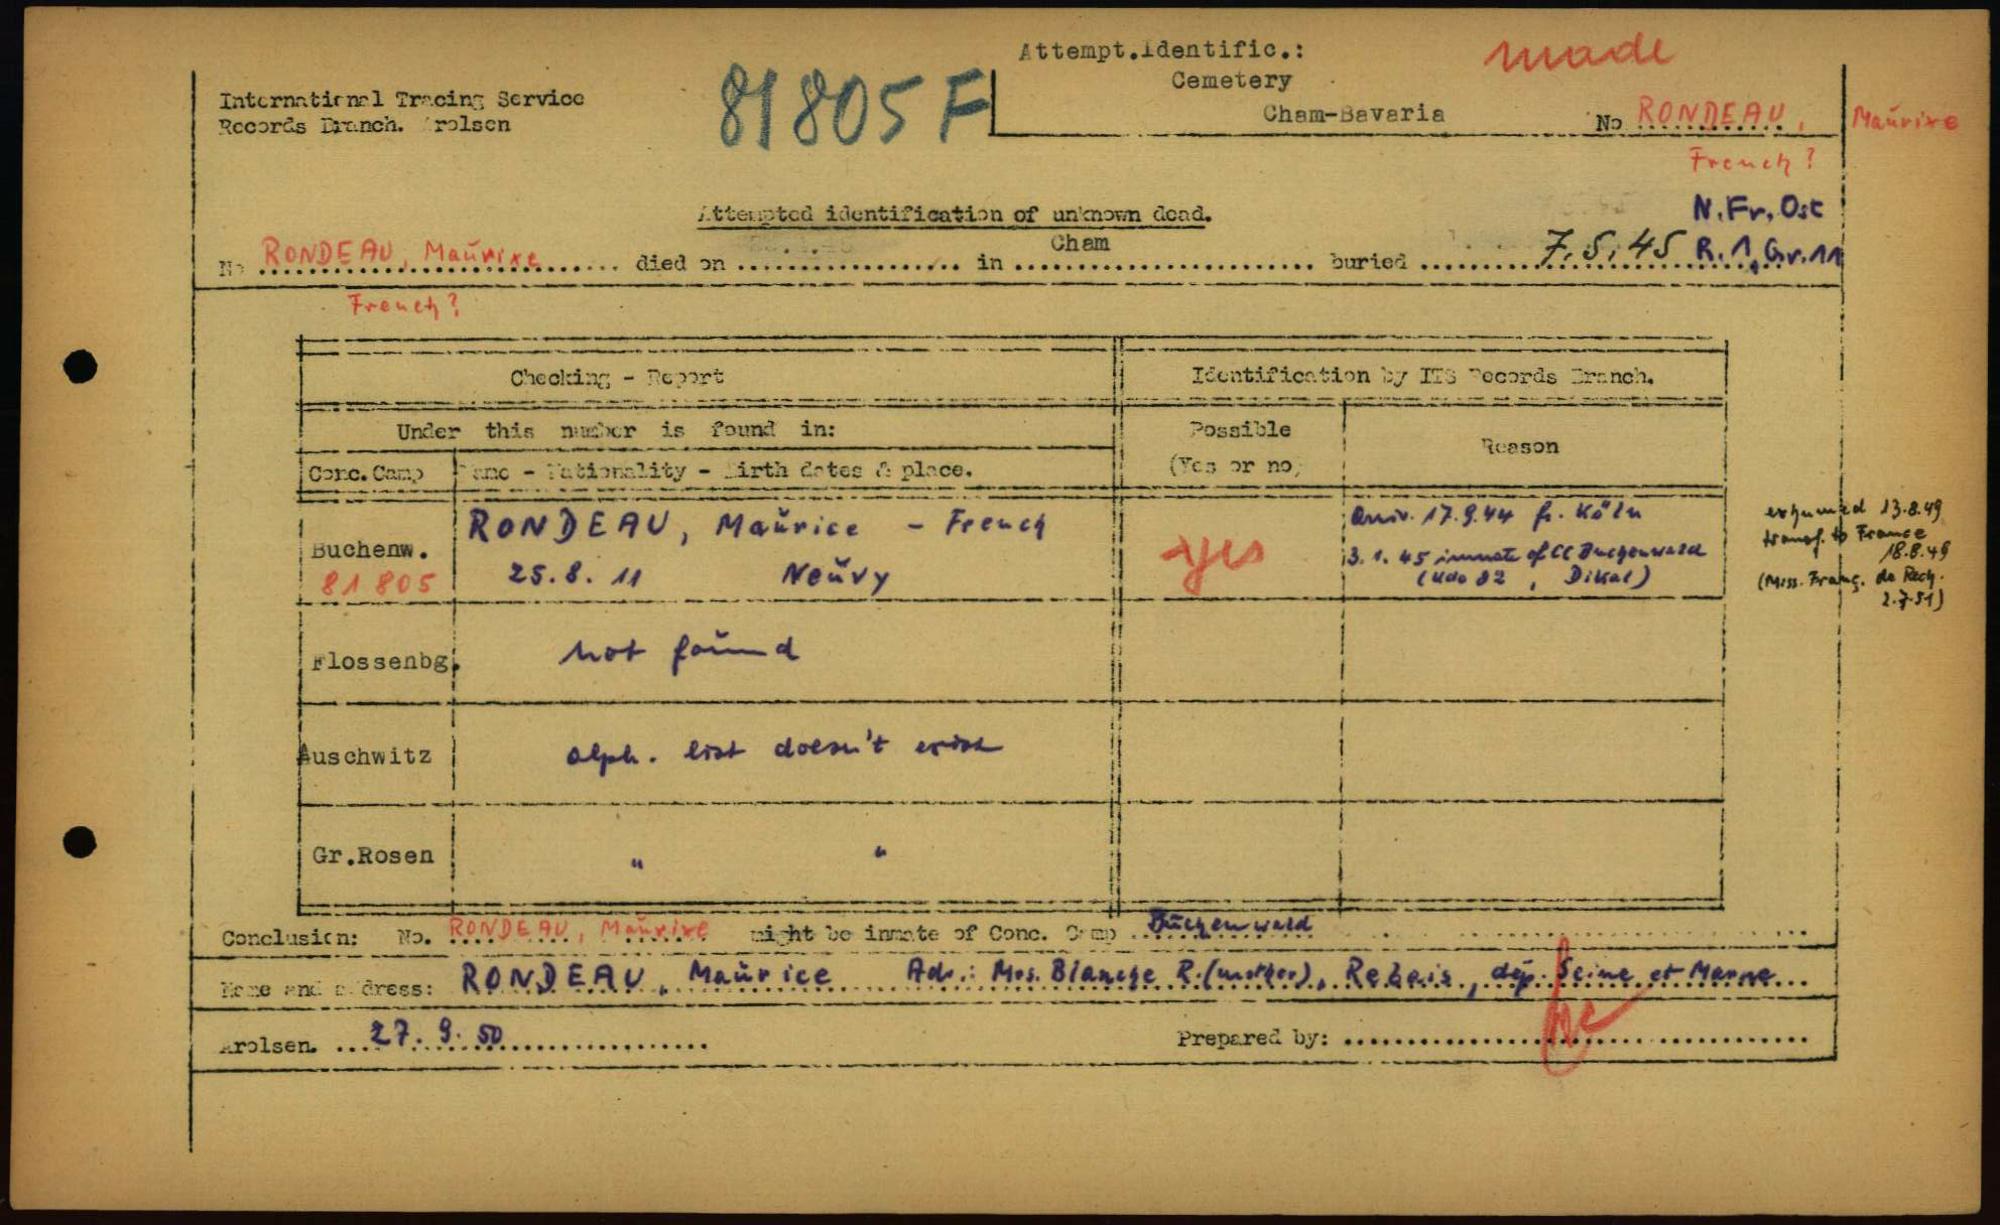 Attempt.Identific.:
made
Cemetery
Cham-Bavaria
International Tracing Service
Records Branch. Arolsen
81805 F
No RONDEAU, Maŭrixe
French?
N.Fr.Ost
Attempted identification of unknown dead.
No RONDEAU, Maŭrixe died on in Cham buried 7.5.45 R.1, Gr.11
French?
Checking - Report
Identification by ITS Records Branch.
Under this number is found in:
Possible
(Yes or no)
Reason
Conc.Camp
Name - Nationality - Birth dates & place.
Buchenw.
81805
RONDEAU, Maŭrice - French
25.8.11 Neŭvy
yes
Arriv. 17.9.44 fr. Köln
3.1.45 inmate of CC Buchenwald
(Kdo 82, Dikal)
exhumed 13.8.49
transf. to France
18.8.49
(Miss. Franç. de Rech.
2.7.51)
Flossenbg.
not foŭnd
Auschwitz
alph. list doesn't exist
Gr.Rosen
" "
Conclusion: No. RONDEAU, Maŭrixe might be inmate of Conc. Camp Bŭchenwald
Name and address: RONDEAU, Maŭrice Adr.: Mrs. Blanche R. (mother), Rebais, dép. Seine et Marne
Arolsen. 27.9.50
Prepared by: